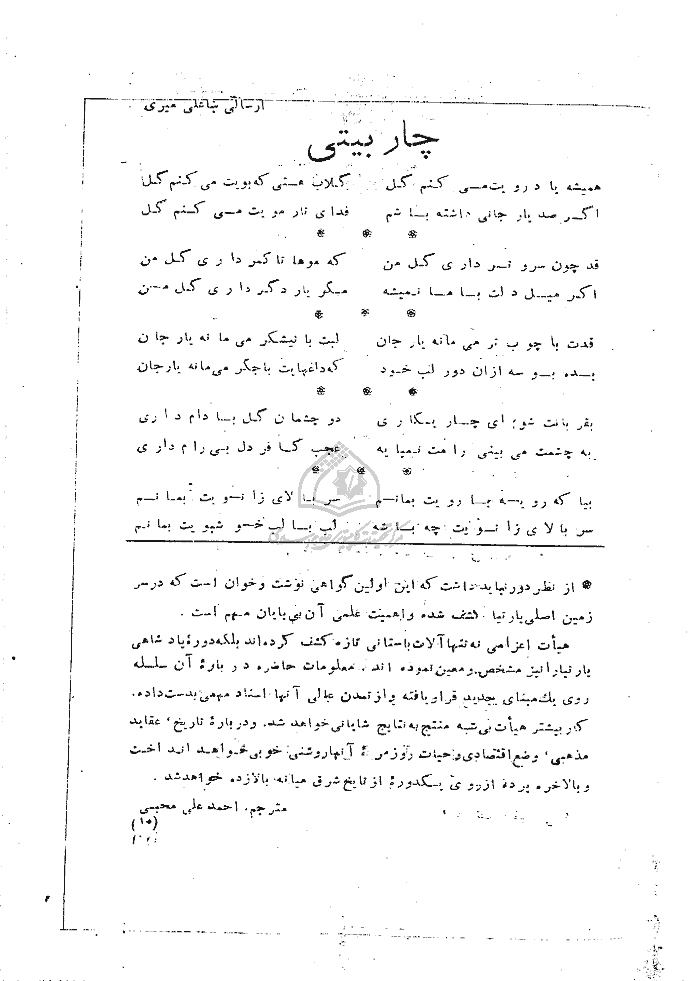 ارسالی شاعلی میری
چار بیتی
همیشه یاد رویت می کنم گل گلاب هستی که بویت می کنم گل
اگر صد یار جانی داشته باشم فدای تار مویت می کنم گل
قد چون سرو تر داری گل من که موها تا کمر داری گل من
اگر میل دلت با ما نمیشه مگر یار دگر داری گل من
قدت با چوب تر می مانه یار جان لبت با نیشکر می مانه یار جان
بده بوسه ازان دور لب خود که داغهایت باجگر می مانه یارجان
بقربانت شوم ای چار یکاری دو چشمان گل بادام داری
به چشمت می بینی رامت نمیایه عجب کافر دل بی رام داری
بیا که رویـه با رویت بمانم سر بالای زانویت بمانم
سر بالای زانویت چه باشه لب بالب خوشبویت بمانم
از نظر دور نباید داشت که این اولین گواهی نوشت و خوان است که در سر
زمین اصلی پارتیا کشف شده و اهمیت علمی آن بی پایان مهم است .
هیأت اعزامی نه تنها آلات باستانی تازه کشف کرده اند بلکه دورهٔ پادشاهی
پارتیا را نیز مشخص و معین نموده اند . معلومات حاضره در بارهٔ آن سلسله
روی یك مبنای جدید قرار یافته و از تمدن عالی آنها اسناد مهمی بدست داده.
کار بیشتر هیأت بی شبه منتج به نتایج شایانی خواهد شد. و در بارهٔ تاریخ، عقاید
مذهبی، وضع اقتصادی و حیات روزمرهٔ آنها روشنی خوبی خواهد انداخت
و بالاخره پرده از روی یکدورهٔ از تاریخ شرق میانه بالازده خواهد شد .
مترجم، احمد علی محبی
(۱۰)